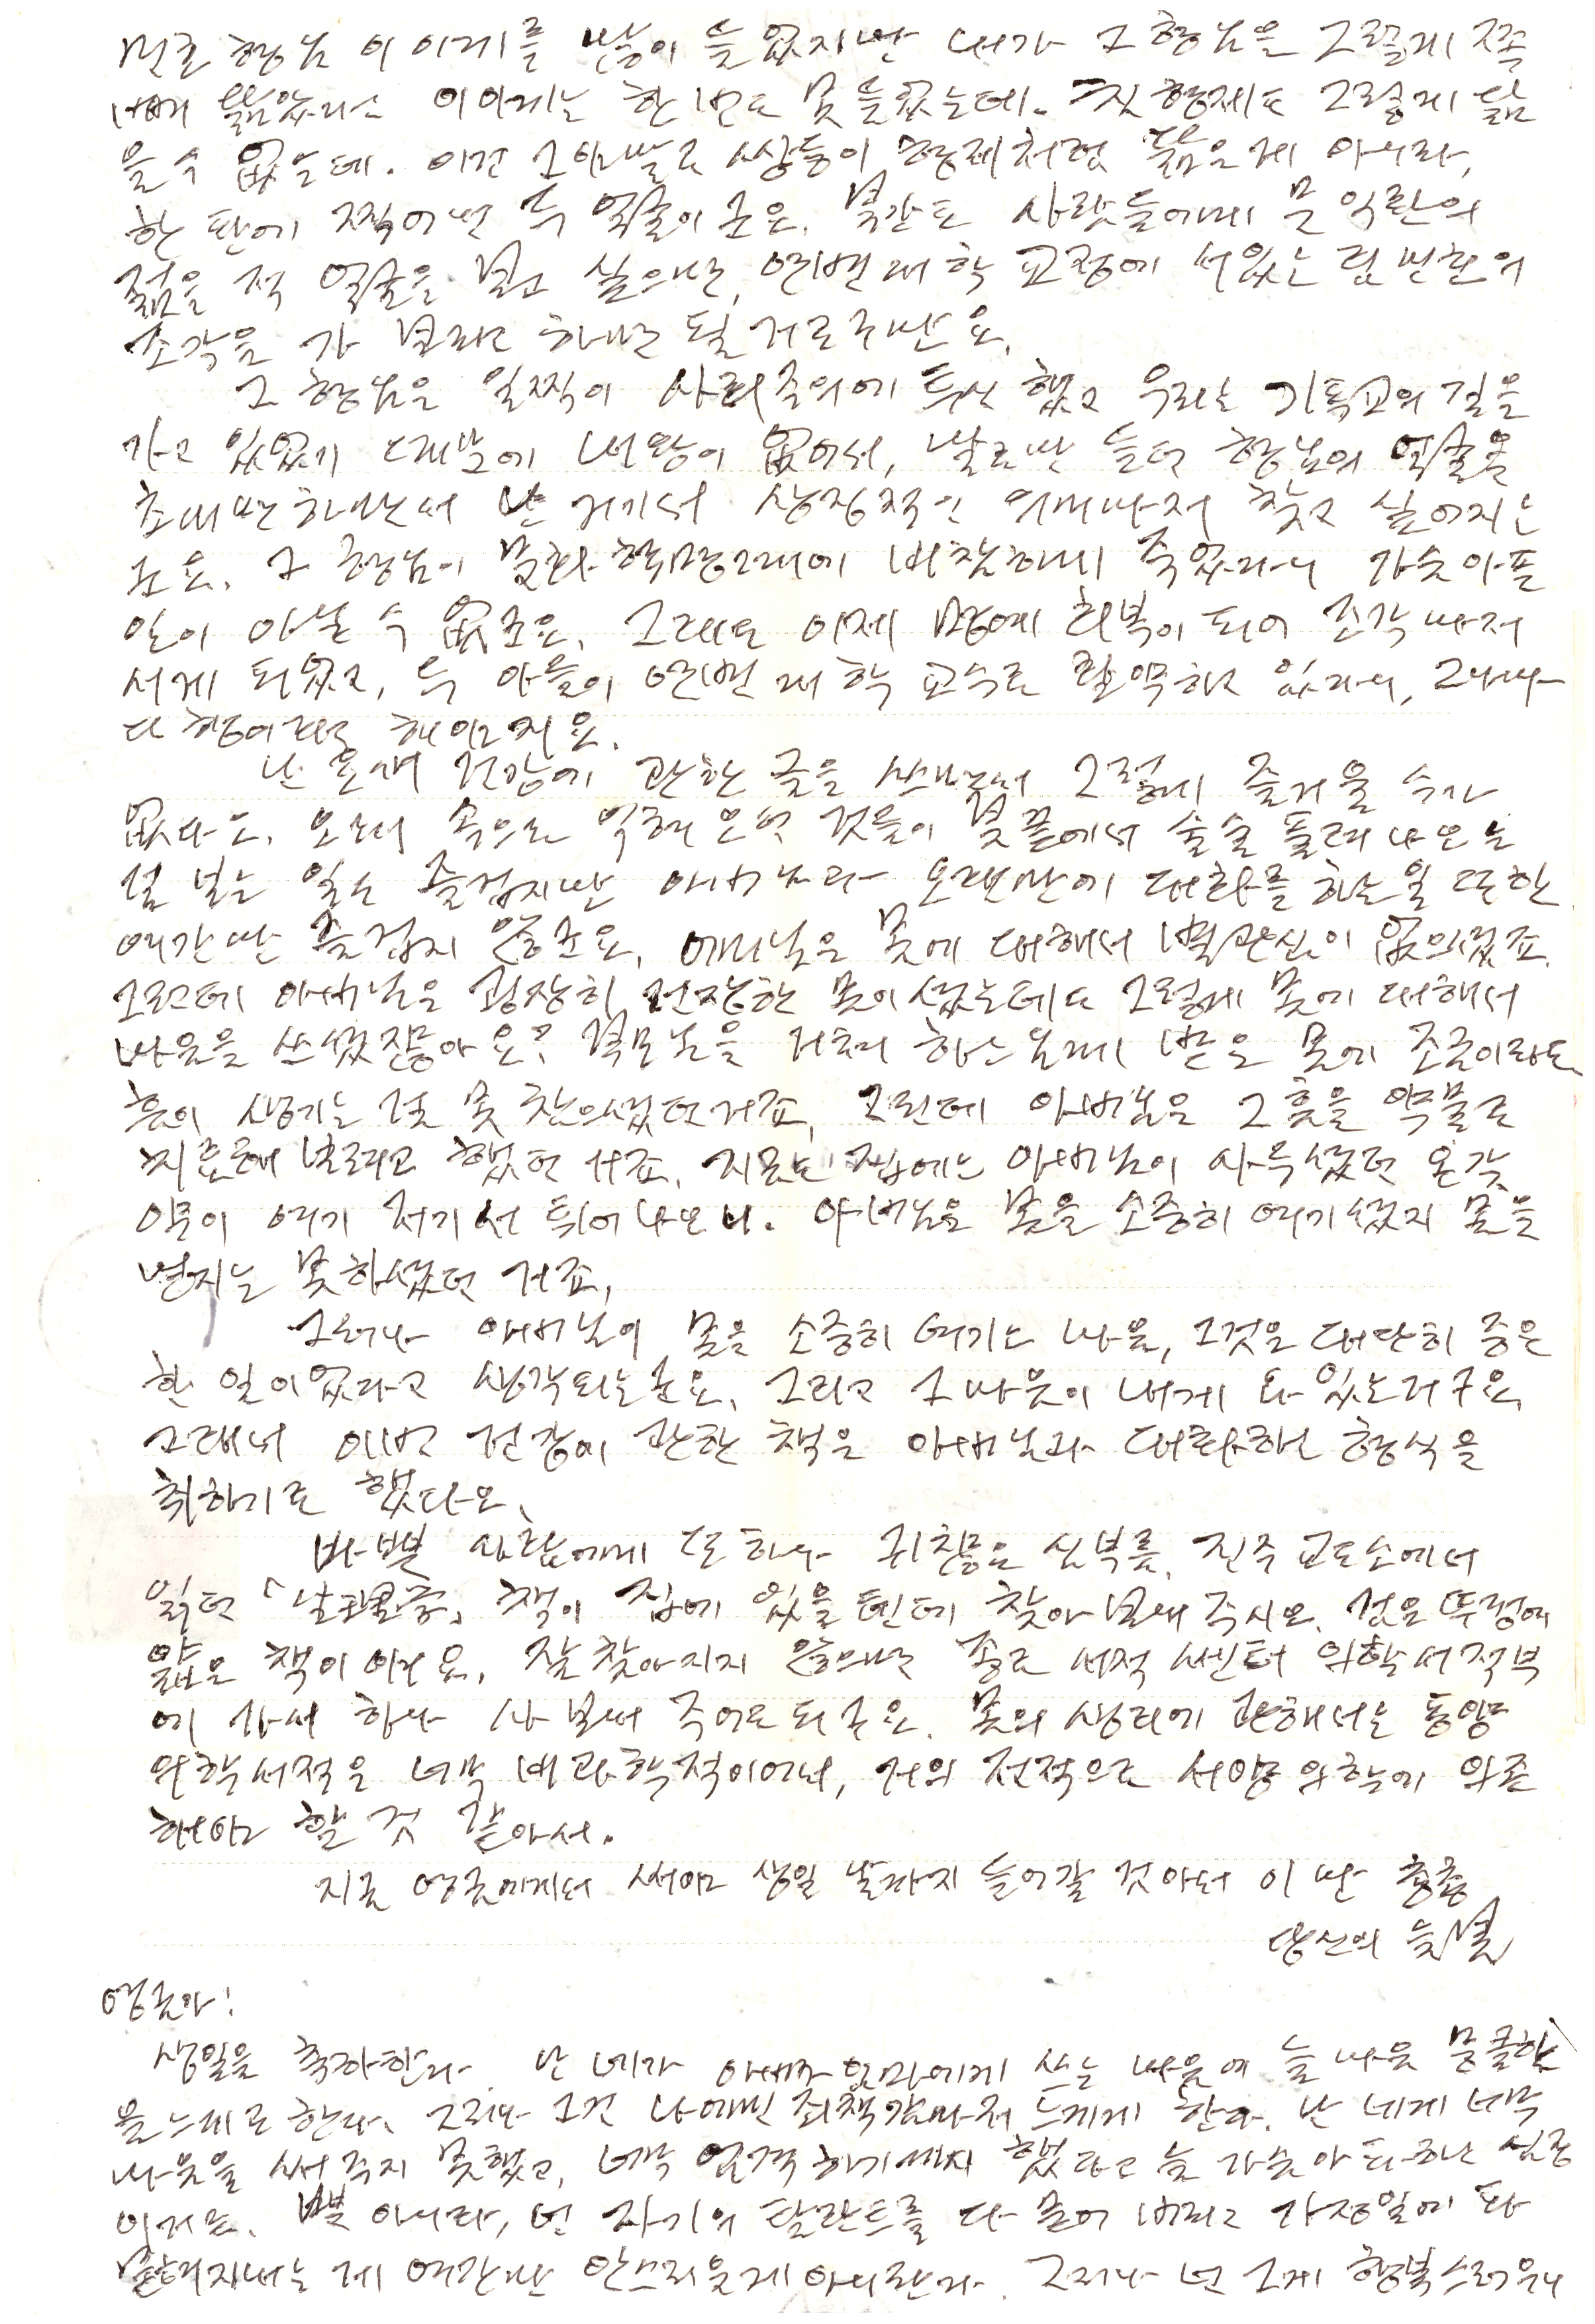 형님 이야기를 많이 들었지만 내가 그 형님을 그렇게 쪽
빼 닮았다는 이야기는 한 번도 못 들었는데. 친형제도 그렇게 닮
을 수 없을데. 이건 그야말로 쌍둥이 형제처럼 닮은게 아니라,
한 판에 찍어낸 두 얼굴이군요. 사람들에게 문익환의
젊을 적 얼굴을 보고 싶으면, 연변대학 교정에 서있는 림민호의
조각을 가 보라고 하면 될 거로구만요.
그 형님은 일찍이 사회주의에 투신했고 우리는 기독교의 길을
가고 있었기 때문에 내왕이 없어서, 말로만 듣던 형님의 얼굴을
초대면하면서 난 거기서 상징적인 의미마저 찾고 싶어지는
군요. 그 형님이 문화혁명때에 비참하게 죽었다니 가슴아플
일이 아닐 수 없군요. 그래도 이제 명예회복이 되어 조각마저
서게 되었고, 두 아들이 연변대학 교수로 활약하고 있다니, 그나마
다행이라고 해야겠지요.
난 요새 건강에 관한 글을 쓰면서 그렇게 즐거울 수가
없다오. 오래 속으로 익혀 오던 것들이 붓끝에서 술술 풀려나오는
걸 보는 일도 즐겁지만 아버님과 오랜만에 대화를 하는 일 또한
여간만 즐겁지 않군요. 어머님은 몸에 대해서 별 관심이 없으셨죠.
그런데 아버님은 굉장히 건장한 몸이셨는데도 그렇게 몸에 대해서
마음을 쓰셨잖아요? 부모님을 거쳐 하느님께 받은 몸에 조금이라도
흠이 생기는 걸 못 참으셨던거죠. 그런데 아버님은 그 흠을 약물로
치료해 보려고 했던 거죠. 지금도 집에는 아버님이 사두셨던 온갖
약이 여기 저기서 튀어나오니. 아버님은 몸을 소중히 여기셨지 몸을
믿지는 못하셨던 거죠.
그러나 아버님이 몸을 소중히 여기는 마음, 그것은 대단히 중요
한 일이었다고 생각되는군요. 그리고 그 마음이 내게 와 있는거구요.
그래서 이번 건강에 관한 책은 아버님과 대화하는 형식을
취하기로 했다오.
바쁜 사람에게 또 하나 귀찮은 심부름. 진주 교도소에서
읽던 「生理學」 책이 집에 있을텐데 찾아 보내 주시오. 검은 뚜껑에
얇은 책이어요. 잘 찾아지지 않으면 종로 서적 센터 의학서적부
에 가서 하나 사 보내 주어도 되구요. 몸의 생리에 관해서는 동양
의학서적은 너무 비과학적이어서, 거의 전적으로 서양의학에 의존
해야 할 것 같아서.
지금 영금에게 써야 생일 날까지 들어갈 것 같아서 이만 총총
당신의 늦봄
영금아!
생일을 축하한다. 난 네가 아빠 엄마에게 쓰는 마음에 늘 마음 뭉클함
을 느끼곤 한다. 그러나 그건 나에겐 죄책감마저 느끼게 한다. 난 네게 너무
마음을 써 주지 못했고, 너무 엄격하기까지 했다고 늘 가슴아파하는 심정
이거든. 뿐 아니라, 넌 자기의 탈란트를 다 묻어 버리고 가정일에 파
묻혀지내는 게 여간만 안쓰러운게 아니란다. 그러나 넌 그게 행복스러우니